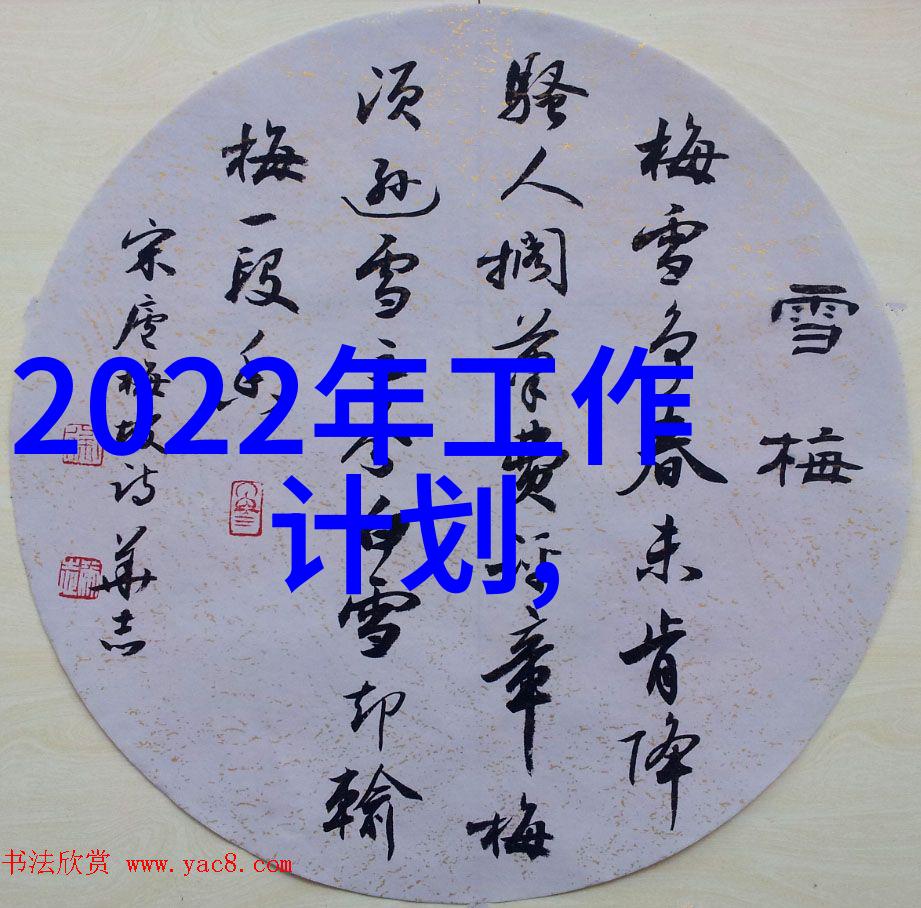 雪梅
梅雪争春未肯降
騷人擱筆費評章梅
須遜雪三分白雪却輸
梅一段香
宋盧梅坡诗 華志
2022年工作
计划,
书法欣赏 www.yac8.com